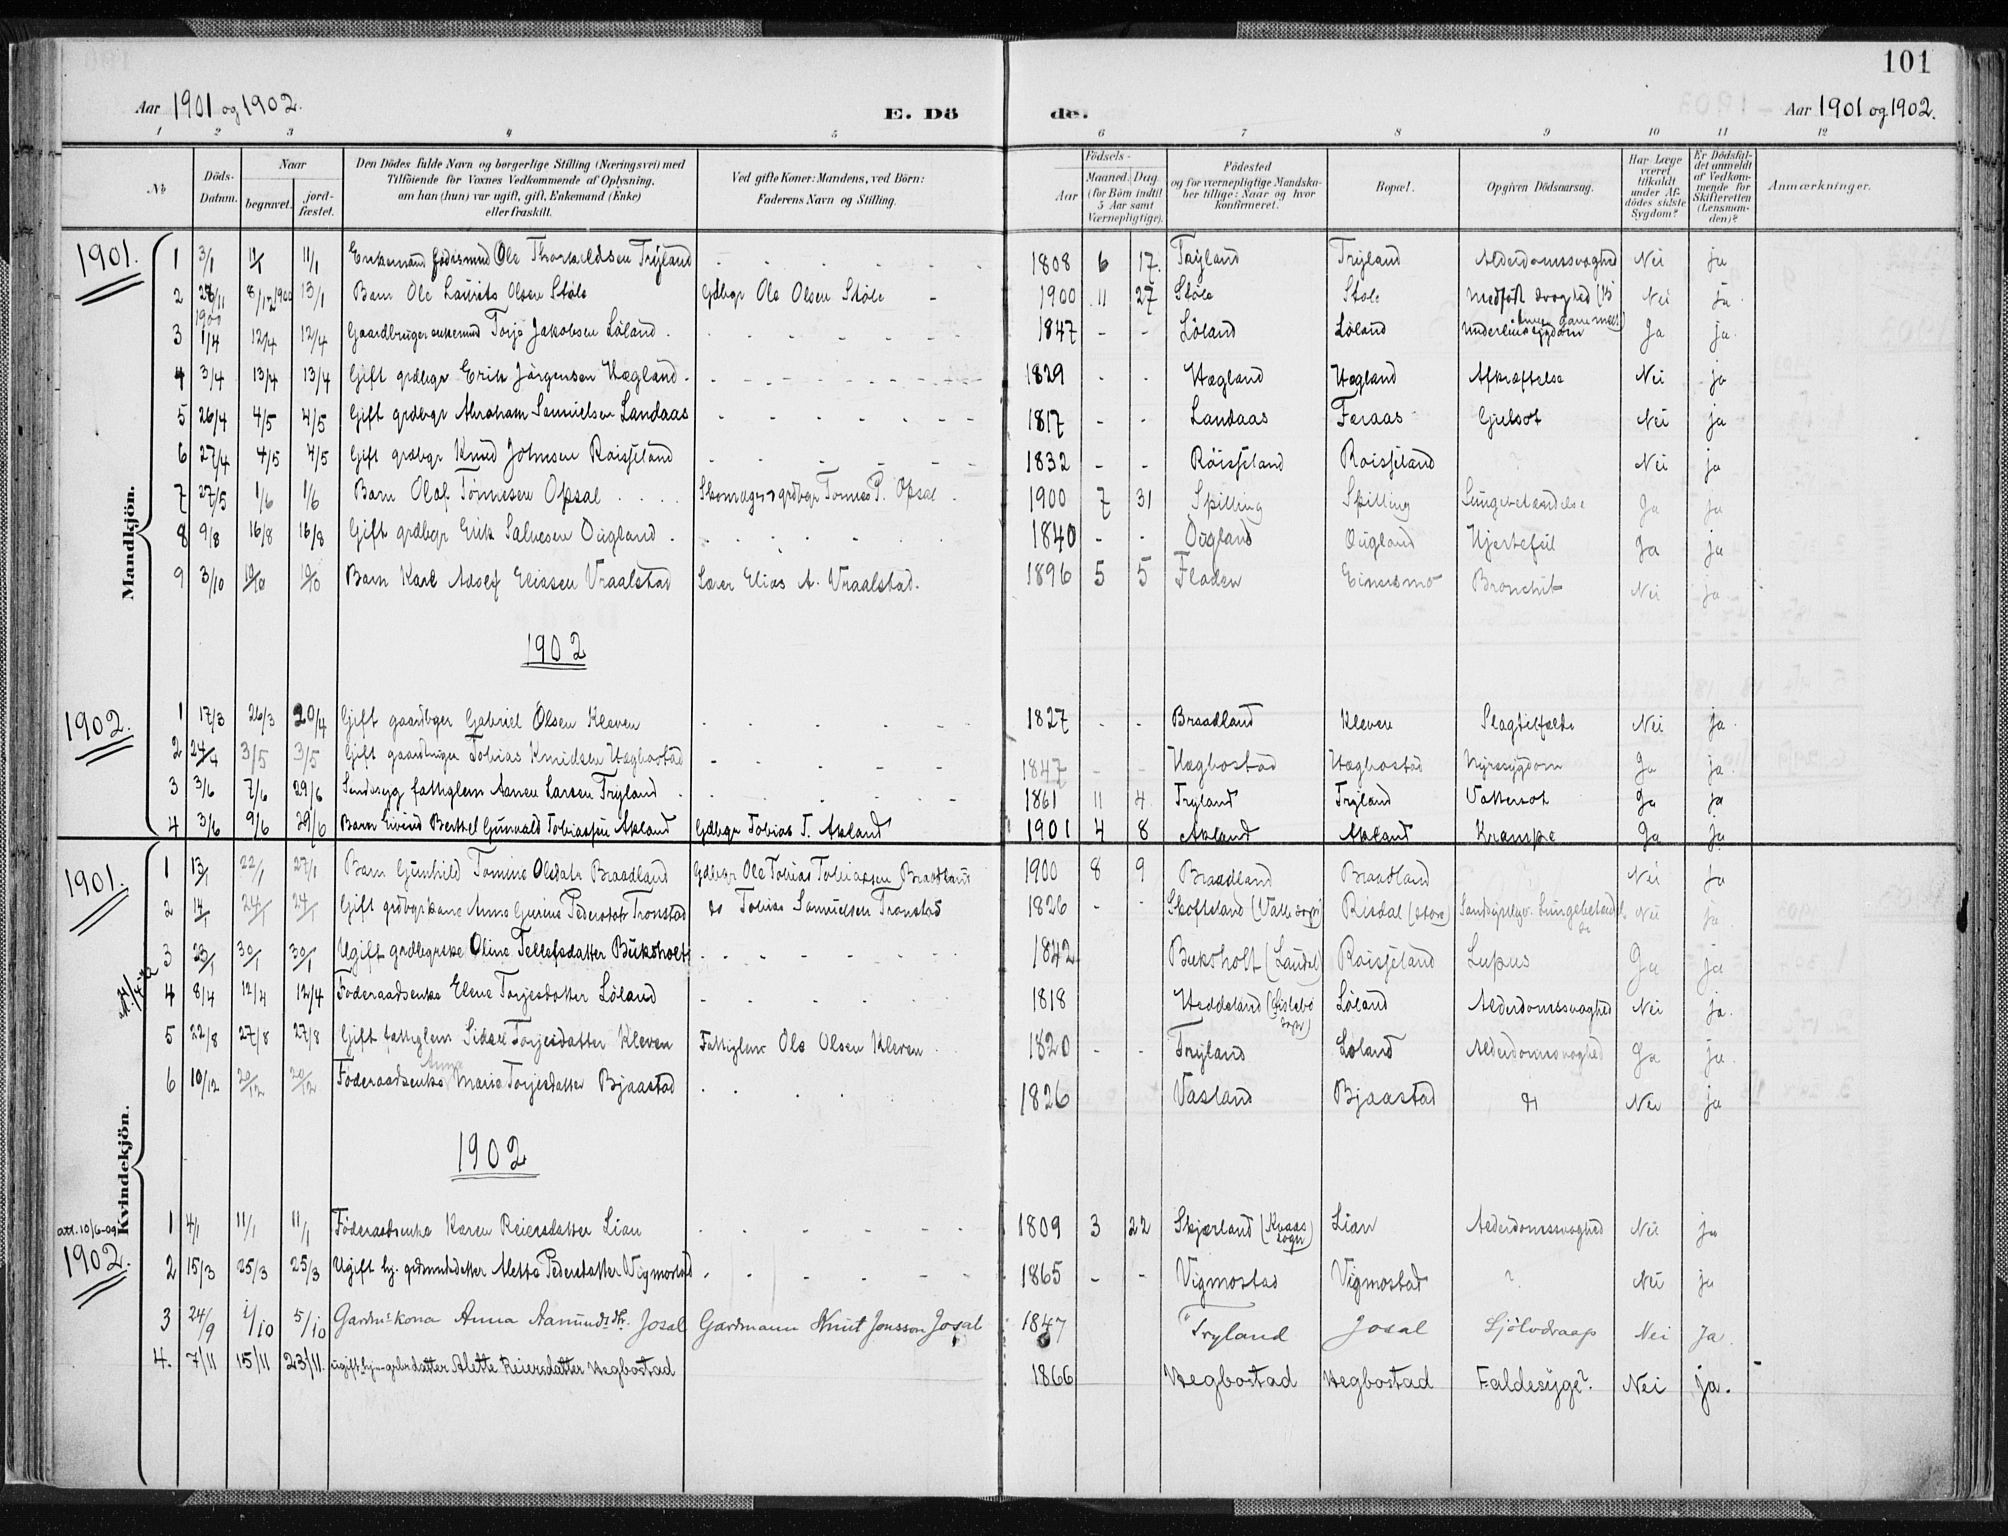 101
Aar 1901 og 1902. E. Dö de. Aar 1901 og 1902.
1 2 3 4 5 6 7 8 9 10 11 12
No Döds-Datum. Naar begravet. jord-fæstet. Den Dödes fulde Navn og borgerlige Stilling (Næringsvei) med Tilföiende for Voxnes Vedkommende af Oplysning, om han (hun) var ugift, gift, Enkemand (Enke) eller fraskilt. Ved gifte Koner: Mandens, ved Börn: Faderens Navn og Stilling. Födsels- Aar Maaned. Dag (for Börn indtil 5 Aar samt Værnepligtige). Födested og for værnepligtige Mandska-ber tillige: Naar og hvor konfirmeret. Bopæl. Opgiven Dödsaarsag. Har Læge været tilkaldt under Af-dödes sidste Sygdom? Er Dödsfal-det anmeldt af Vedkom-mende for Skifteretten (Lensman-den)? Anmærkninger.
Mandkjön.
1901.
1 3/1 11/1 11/1 Enkemand födermand Ole Thorkildsen Tryland 1808 6 17. Tryland Tryland Alderdomssvaghed Nei ja
2 28/11 1900 8/12 1900 13/1 Barn Ole Laurits Olsen Støle Gdbgr Ole Olsen Støle 1900 11 27 Støle Støle Medfødt svaghed Nei ja
3 1/4 12/4 12/4 Gaardbruger enkemand Torje Jakobsen Løland 1847 - - Løland Løland Underlivssygdom Ja ja
4 3/4 13/4 13/4 Gift grdbgr Erik Jørgensen Hægland 1829 - - Hægland Hægland Afkræftelse Nei ja
5 26/4 4/5 4/5 Gift grdbgr Abraham Samuelsen Landaas 1817 - - Landaas Feraas Gulsot Nei ja
6 27/4 4/5 4/5 Gift grdbgr Knud Johnsen Røisjeland 1832 - - Røisjeland Roisjeland ? Nei ja
7 27/5 1/6 1/6 Barn Olaf Tønnesen Opsal Skomager & grdbgr Tønnes P. Opsal 1900 7 31 Spilling Spilling Lungebetændelse Ja ja
8 9/8 16/8 16/8 Gift grdbgr Erik Salvesen Øugland 1840 - - Øugland Øugland Hjertefeil Ja ja
9 3/10 10/10 10/10 Barn Karl Adolf Eliassen Vraalstad Lærer Elias A. Vraalstad. 1896 5 5 Fladen Einersmo Bronchit Nei ja
1902
1902.
1 17/3 26/3 20/4 Gift gaardbgr Gabriel Olsen Kleven 1827 - - Braadland Kleven Slagtilfælde Nei ja
2 24/4 3/5 3/5 Gift gaardbruger Tobias Knudsen Hægbostad 1847 - - Hægbostad Hægbostad Nyresygdom Ja ja
3 3/6 7/6 29/6 Sindssyg fattiglem Aanen Larsen Tryland 1861 11 4 Tryland Tryland Vattersot Ja ja
4 3/6 9/6 29/6 Barn Eivind Berthel Gunvald Tobiassen Akland Gdbgr Tobias T. Akland 1901 4 8 Akland Akland Krampe Ja ja
Kvindekjön.
1901.
1 13/1 22/1 27/1 Barn Gunhild Tomine Olsdatr Braadland Gdbgr Ole Tobias Tobiassen Braadland 1900 8 9 Braadland Braadland Nei ja
2 14/1 24/1 24/1 Gift grdbgrkone Anne Gurine Pedersdotr Tronstad do Tobias Samuelsen Tronstad 1826 - - Skofteland (Valle sogn) Risdal (store) Nei ja
3 23/1 30/1 30/1 Ugift grdbgrske Oline Tellefsdatter Buksholt 1842 Buksholt (Laudal) Roisjeland Lupus Ja ja
4 8/4 12/4 12/4 Føderaadsenke Elene Torjesdatter Løland 1818 Heddeland (Øislebø sogn) Løland Alderdomssvaghed Nei ja
5 22/8 27/8 27/8 Gift fattiglem Sidsel Torjesdatter Kleven Fattiglem Ole Olsen Kleven 1820 - - Tryland Løland Alderdomssvaghed Ja ja
6 10/12 20/12 20/12 Føderaadsenke Anne Marie Torjesdatter Bjaastad 1826 Vasland Bjaastad do Nei ja
1902
att. 10/6-09
1902.
1 4/1 11/1 11/1 Føderaadsenke Karen Reiersdatter Lian 1809 3 22 Skjærland (Kvaas sogn) Lian Alderdomssvaghed Nei ja
2 15/3 25/3 25/3 Ugift hj. grdmandsdatter Aletta Pedersdatter Vigmostad 1865 - - Vigmostad Vigmostad ? Nei ja
3 24/9 1/10 5/10 Gardmskona Anna Aamundsdtr. Josal Gardmann Knut Jonsson Josal 1847 Tryland Josal Sjölvdraap Nei Ja.
4. 7/11 15/11 23/11. ugift hj. grbr.datter Alette Reiersdatter Hegbostad 1866 Hegbostad Hegbostad Faldesyge? Nei ja.